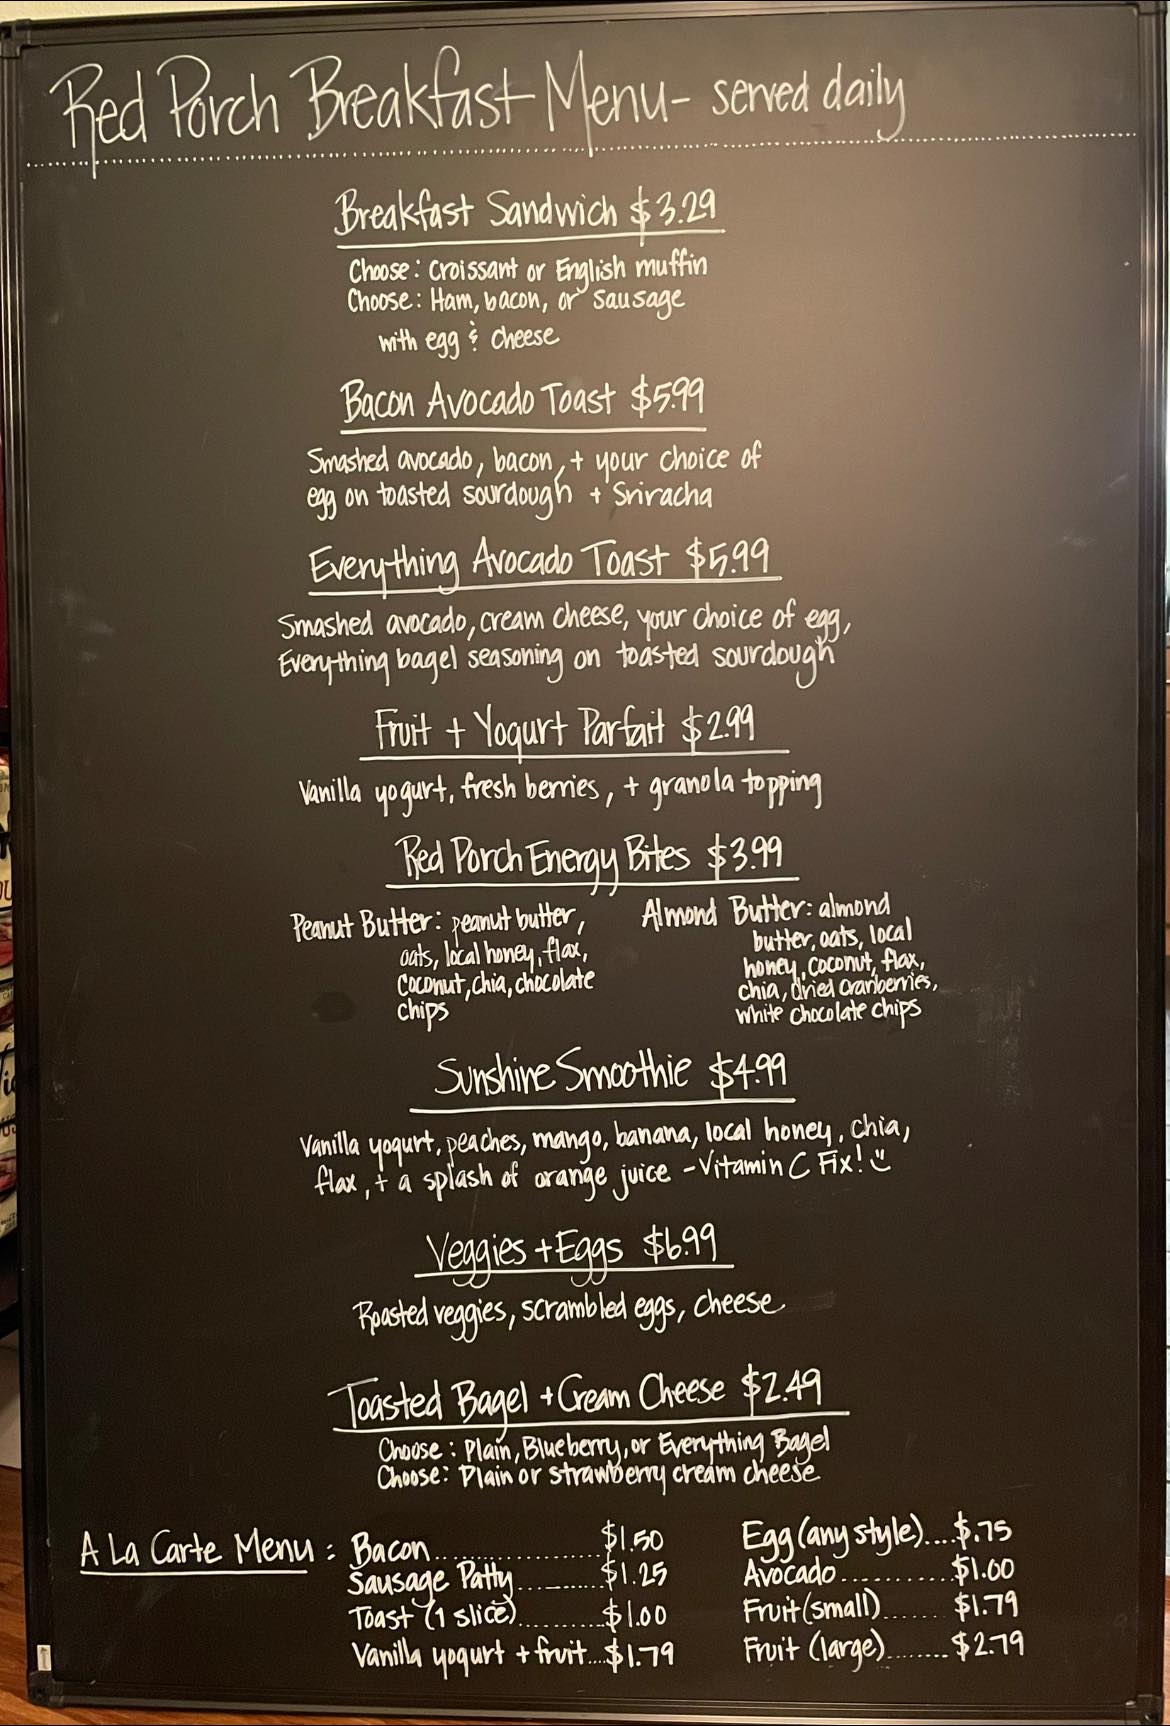 Red Porch Breakfast Menu - served daily
Breakfast Sandwich $3.29
Choose: Croissant or English muffin
Choose: Ham, bacon, or sausage
with egg & cheese
Bacon Avocado Toast $5.99
Smashed avocado, bacon, + your choice of
egg on toasted sourdough + Sriracha
Everything Avocado Toast $5.99
Smashed avocado, cream cheese, your choice of egg,
Everything bagel seasoning on toasted sourdough
Fruit + Yogurt Parfait $2.99
Vanilla yogurt, fresh berries, + granola topping
Red Porch Energy Bites $3.99
Peanut Butter: peanut butter,
oats, local honey, flax,
coconut, chia, chocolate
chips
Almond Butter: almond
butter, oats, local
honey, coconut, flax,
chia, dried cranberries,
white chocolate chips
Sunshine Smoothie $4.99
Vanilla yogurt, peaches, mango, banana, local honey, chia,
flax, + a splash of orange juice - Vitamin C Fix!
Veggies + Eggs $6.99
Roasted veggies, scrambled eggs, cheese
Toasted Bagel + Cream Cheese $2.49
Choose: Plain, Blueberry, or Everything Bagel
Choose: Plain or strawberry cream cheese
A La Carte Menu:
Bacon.....................$1.50
Sausage Patty...........$1.25
Toast (1 slice)...........$1.00
Vanilla yogurt + fruit....$1.79
Egg (any style)....$.75
Avocado...........$1.00
Fruit (small)....... $1.79
Fruit (large)........$2.79